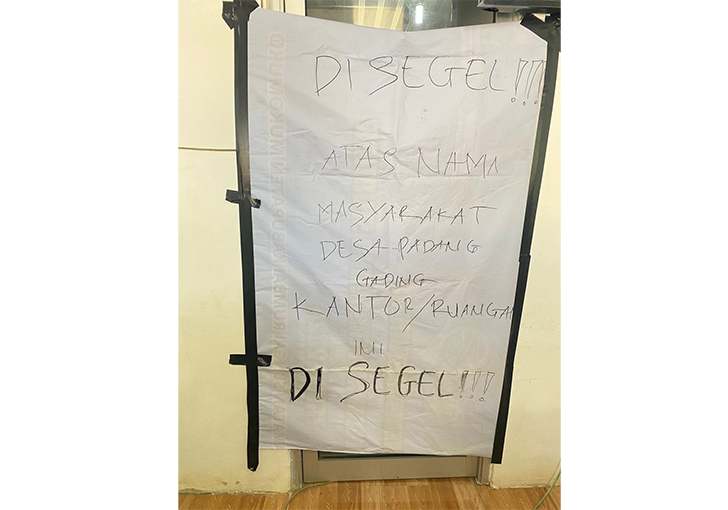 DI SEGEL!!!
ATAS NAMA
MASYARAKAT
DESA PADANG
GADING
KANTOR/RUANGAN
INI
DI SEGEL!!!